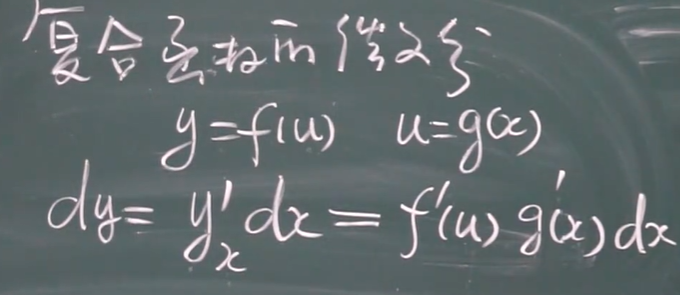 复合函数的微分
y=f(u) u=g(x)
dy=y'ₓdx=f'(u)g'(x)dx